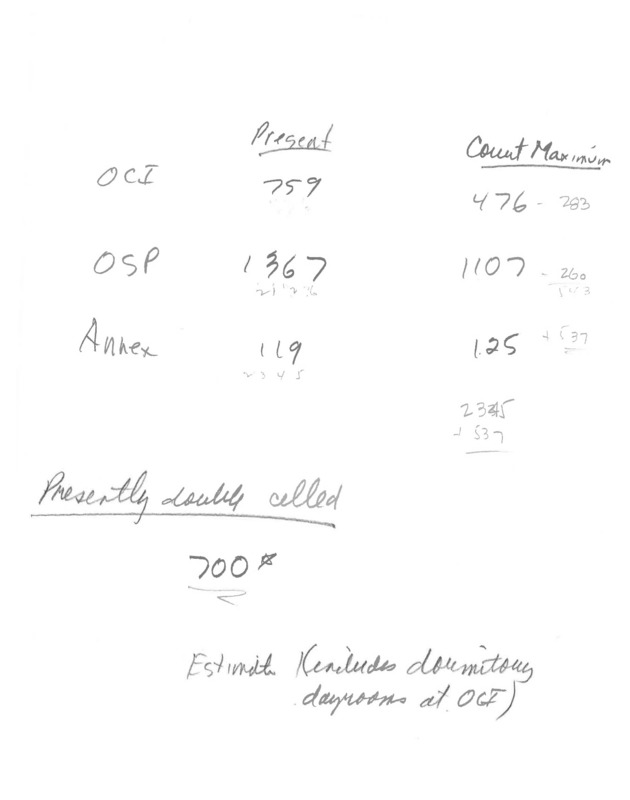 Present Count Maximum
OCI 759 476 - 283
OSP 1367 1107 - 260
Annex 119 125 + 537
2345 2345
+ 537
Presently double celled
700*
Estimate (includes dormitory
dayrooms at OCI)